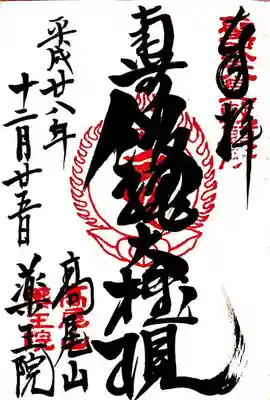 奉拝
南無飯縄大権現
高尾山
薬王院
平成廿八年
十二月廿五日